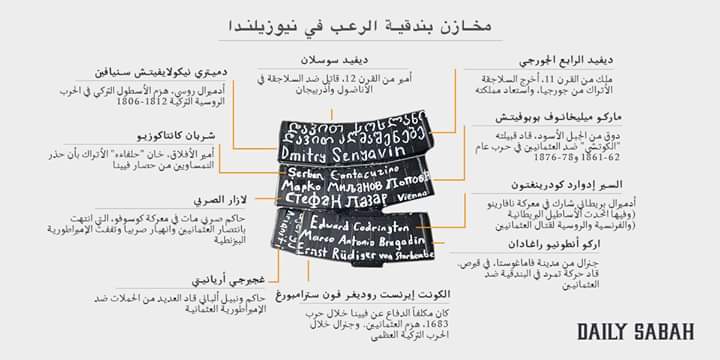 مخازن بندقية الرعب في نيوزيلندا
ديفيد الرابع الجورجي
ملك من القرن 11، أخرج السلاجقة
الأتراك من جورجيا، واستعاد مملكته
ديفيد سوسلان
أمير من القرن 12، قاتل ضد السلاجقة في
الأناضول وأذربيجان
دميتري نيكولايفيتش سنيافين
أدميرال روسي، هزم الأسطول التركي في الحرب
الروسية التركية 1812-1806
ماركو ميليخانوف بوبوفيتش
دوق من الجبل الأسود، قاد قبيلته
"الكوتشي" ضد العثمانيين في حرب عام
1861-62 و1876-78
شربان كانتاكوزيو
أمير الأفلاق، خان "حلفاءه" الأتراك بأن حذر
النمساويين من حصار فيينا
السير إدوارد كودرينغتون
أدميرال بريطاني شارك في معركة نافارينو
(وفيها اتحدت الأساطيل البريطانية
والفرنسية والروسية لقتال العثمانيين)
لازار الصربي
حاكم صربي مات في معركة كوسوفو، التي انتهت
بانتصار العثمانيين وانهيار صربيا وتفتت الإمبراطورية
البيزنطية
اركو أنطونيو راغادان
جنرال من مدينة فاماغوستا، في قبرص.
قاد حركة تمرد في البندقية ضد
العثمانيين
غجيرجي أريانيتي
حاكم ونبيل ألباني قاد العديد من الحملات ضد
الإمبراطورية العثمانية
الكونت إيرنست روديغر فون ستارمبورغ
كان مكلفاً الدفاع عن فيينا خلال حرب
1683، هزم العثمانيين. وجنرال خلال
الحرب التركية العظمى
დავით სოსლანი
დავით აღმაშენებელი
Dmitry Senyavin
Serban Cantacuzino
Марко Миљанов Попови
Стефан Лазар Vienna
Edward Codrington
Marco Antonio Bragadin
Ernst Rüdiger von Starhembe
Arianiti
DAILY SABAH